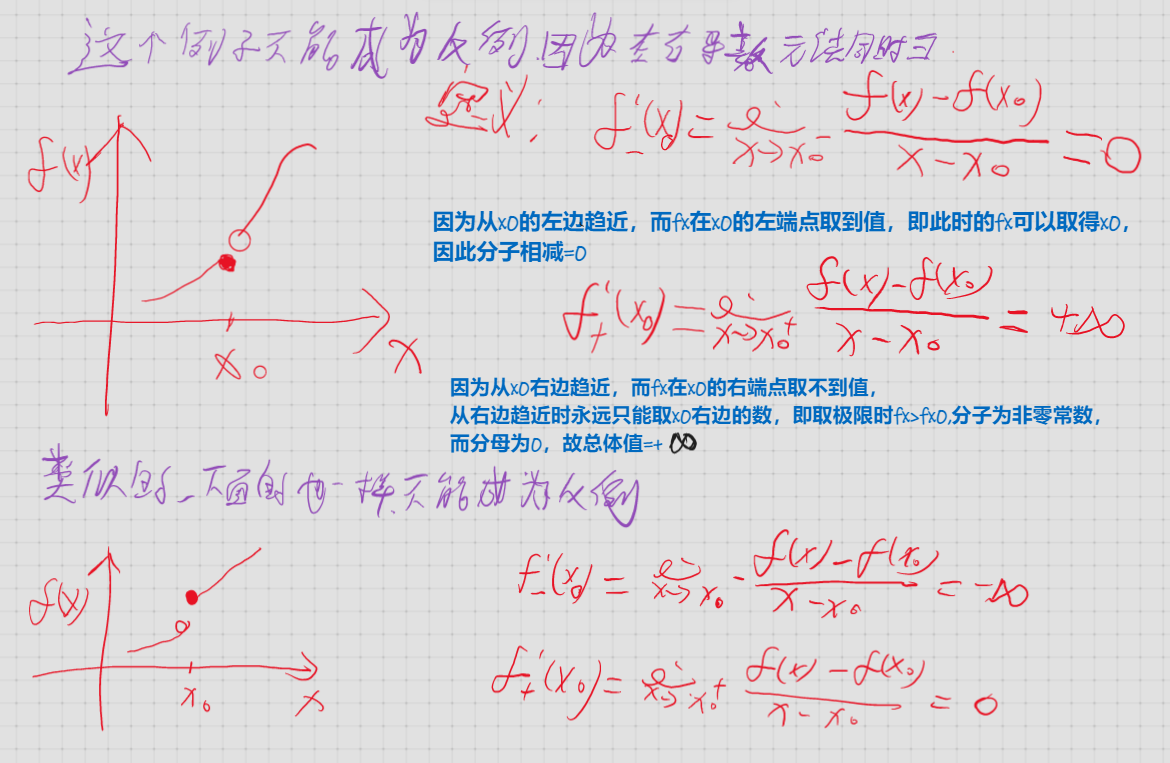 这个例子不能成为反例,因为左右导数无法同时ヨ.
定义: f₋'(x₀) = lim x→x₀⁻ (f(x)-f(x₀))/(x-x₀) = 0
f(x)
因为从x0的左边趋近，而fx在x0的左端点取到值，即此时的fx可以取得x0，
因此分子相减=0
f₊'(x₀) = lim x→x₀⁺ (f(x)-f(x₀))/(x-x₀) = +∞
x₀
x
因为从x0右边趋近，而fx在x0的右端点取不到值，
从右边趋近时永远只能取x0右边的数，即取极限时fx>fx0,分子为非零常数，
而分母为0，故总体值=+ ∞
类似的,下面的也一样不能成为反例
f(x)
f₋'(x₀) = lim x→x₀⁻ (f(x)-f(x₀))/(x-x₀) = -∞
f₊'(x₀) = lim x→x₀⁺ (f(x)-f(x₀))/(x-x₀) = 0
x₀
x